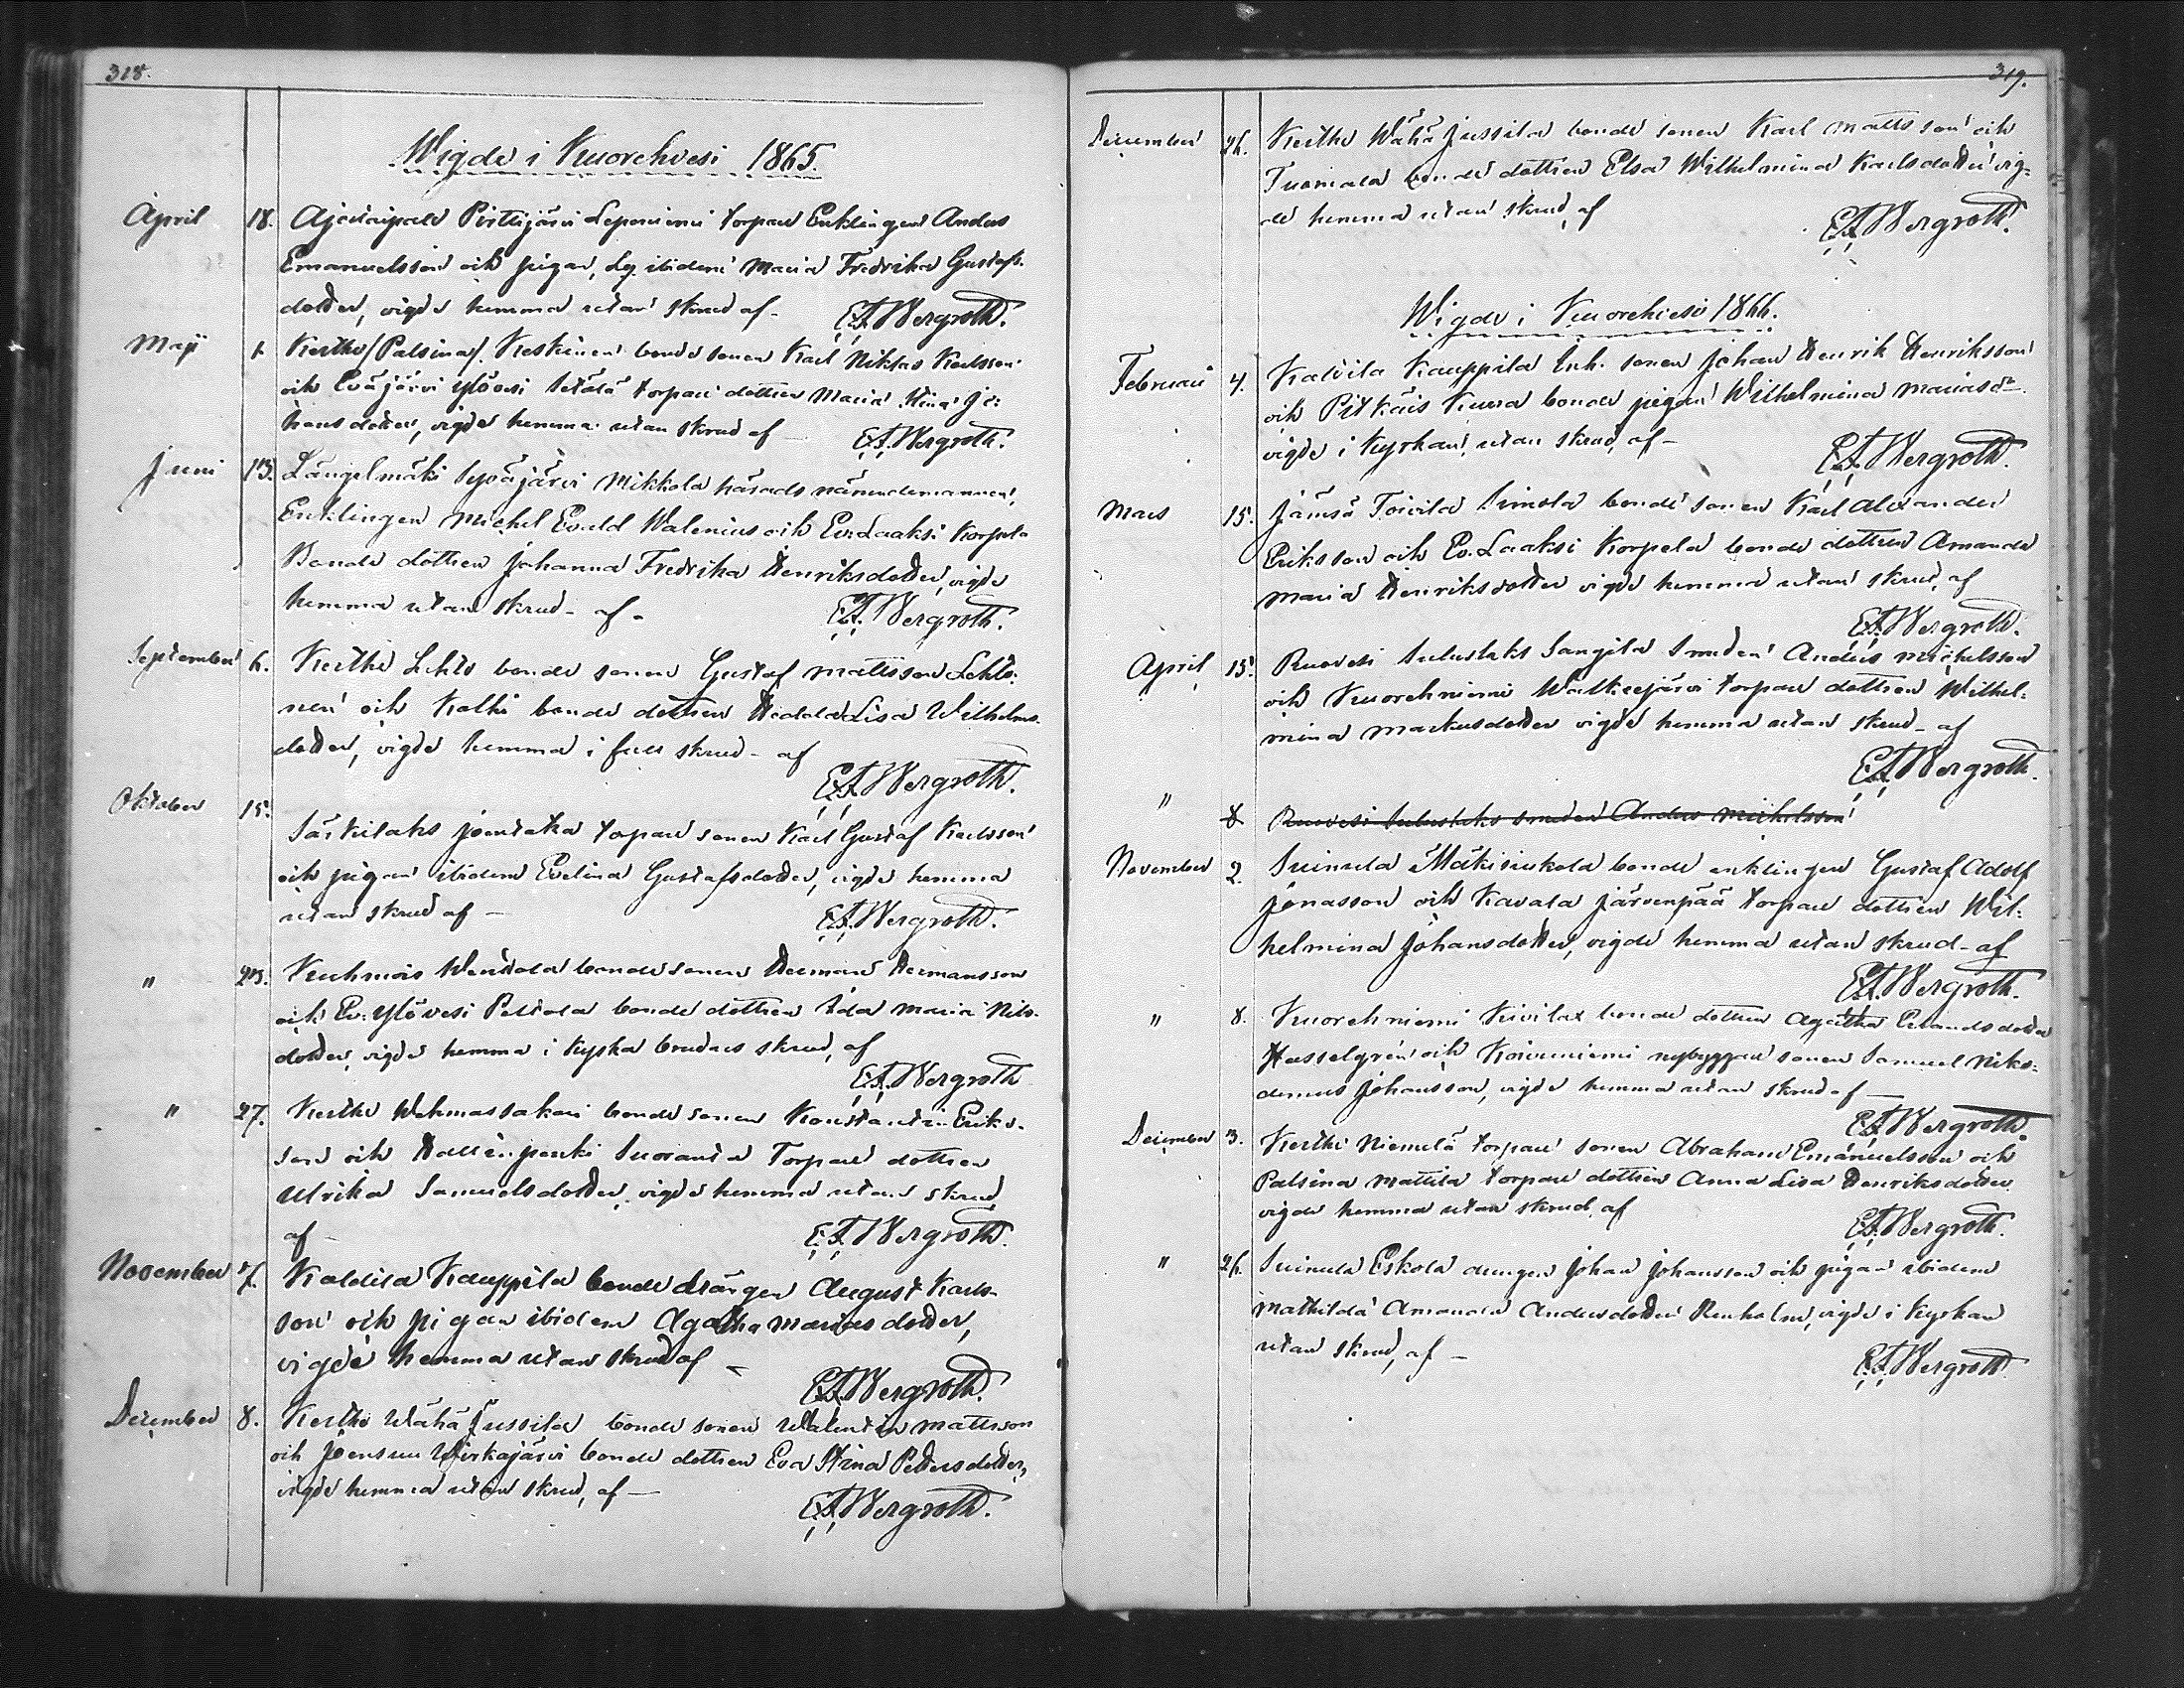 318.
Wigde i Kuorehvesi 1865.
April 18. Ajostaipale Pirttijärvi Lepeniemi torpare Enklingen Anders
Emanuelsson och pigan, Lg. ibidem Maria Fredrika Gustafs-
dotter, vigde hemma utan skrud af - E.A. Bergroth.
Maji 1. Kertte (Palsina). Keskinen bonde sonen Karl Niklas Karlsson
och Eväjärvi Ylövesi Setälä torpare dottren Maria Stina Jo-
hansdotter, vigde hemma utan skrud af - E.A. Bergroth.
Juni 13. Längelmäki Sysäjärvi Mikkola härads nämndemannen,
Enklingen Michel Evald Walenius och Ev. Laaksi Korpela
Bonde dottren Johanna Fredrika Henriksdotter, vigde
hemma utan skrud - af - E.A. Bergroth.
September 6. Kertte Lehto bonde sonen Gustaf Mattsson Lehto-
nen och Kolhi bonde dottren Hedda Lisa Wilhelms-
dotter, vigde hemma i full skrud - af
E.A. Bergroth.
Oktober 15. Särkilaks Joentaka torpare sonen Karl Gustaf Karlsson
och pigan ibidem Evelina Gustafsdotter, vigde hemma
utan skrud af - E.A. Bergroth.
" 23. Kuhmois Wendala bonde sonen Herman Hermansson
och Ev. Ylövesi Peltola bonde dottren Ida Maria Nils-
dotter, vigde hemma i kyrko brudens skrud, af
E.A. Bergroth
" 27. Kertte Wehmassakari bonde sonen Konstantin Eriks-
son och Hallinpenki Suoranta Torpare dottren
Ulrika Samuelsdotter, vigde hemma utan skrud
af - E.A. Bergroth.
November 7. Kaldila Kauppila bonde drängen August Karls-
son och pigan ibidem Agatha Mariasdotter,
vigde hemma utan skrud af -
E.A. Bergroth.
December 8. Kertte Wähä Jussila bonde sonen Walentin Mattsson
och Joensuu Wirkajärvi bonde dottren Eva Stina Pettersdotter,
vigde hemma utan skrud, af -
E.A. Bergroth.
319.
December 26. Kertte Wähä Jussila bonde sonen Karl Matts son och
Tuomala bonde dottren Elsa Wilhelmina Karlsdotter vig-
de hemma utan skrud, af
E.A. Bergroth.
Wigde i Kuorehvesi 1866.
Februari 4. Kalvila Kauppila Inh. sonen Johan Henrik Henriksson
och Pitkäis Kuura bonde pigan Wilhelmina Mariasdr
vigde i kyrkan, utan skrud, af -
E.A. Bergroth.
Mars 15. Jämsä Toivila Simola bonde sonen Karl Alexander
Eriksson och Ev. Laaksi Korpela bonde dottren Amanda
Maria Henriksdotter vigde hemma utan skrud, af
E.A. Bergroth.
April 15. Ruovesi Suluslaks Sangila Smeden Anders Michelsson
och Kuorehniemi Walkeejärvi torpare dottren Wilhel-
mina Markusdotter vigde hemma utan skrud - af
E.A. Bergroth.
" 8 Ruovesi Suluslaks smeden Anders Michelsson
November 2. Suinula Mäkisiukola bonde enklingen Gustaf Adolf
Jonasson och Kavala Järvenpää torpare dottren Wil-
helmina Johansdotter, vigde hemma utan skrud - af
E.A. Bergroth.
" 8. Kuorehniemi Kivilax bonde dottren Agatha Erlandsdotter
Hasselgrén och Koivuniemi nybyggare sonen Samuel Niko-
demus Johansson, vigde hemma utan skrud af -
E.A. Bergroth.
December 3. Kertte Niemelä torpare sonen Abraham Emanuelsson och
Palsina Mattila torpare dottren Anna Lisa Henriksdotter
vigde hemma utan skrud, af
E.A. Bergroth.
" 26. Suinula Eskola drengen Johan Johansson och pigan ibidem
Mathilda Amanda Andersdotter Renholm, vigde i kyrkan
utan skrud, af -
E.A. Bergroth.